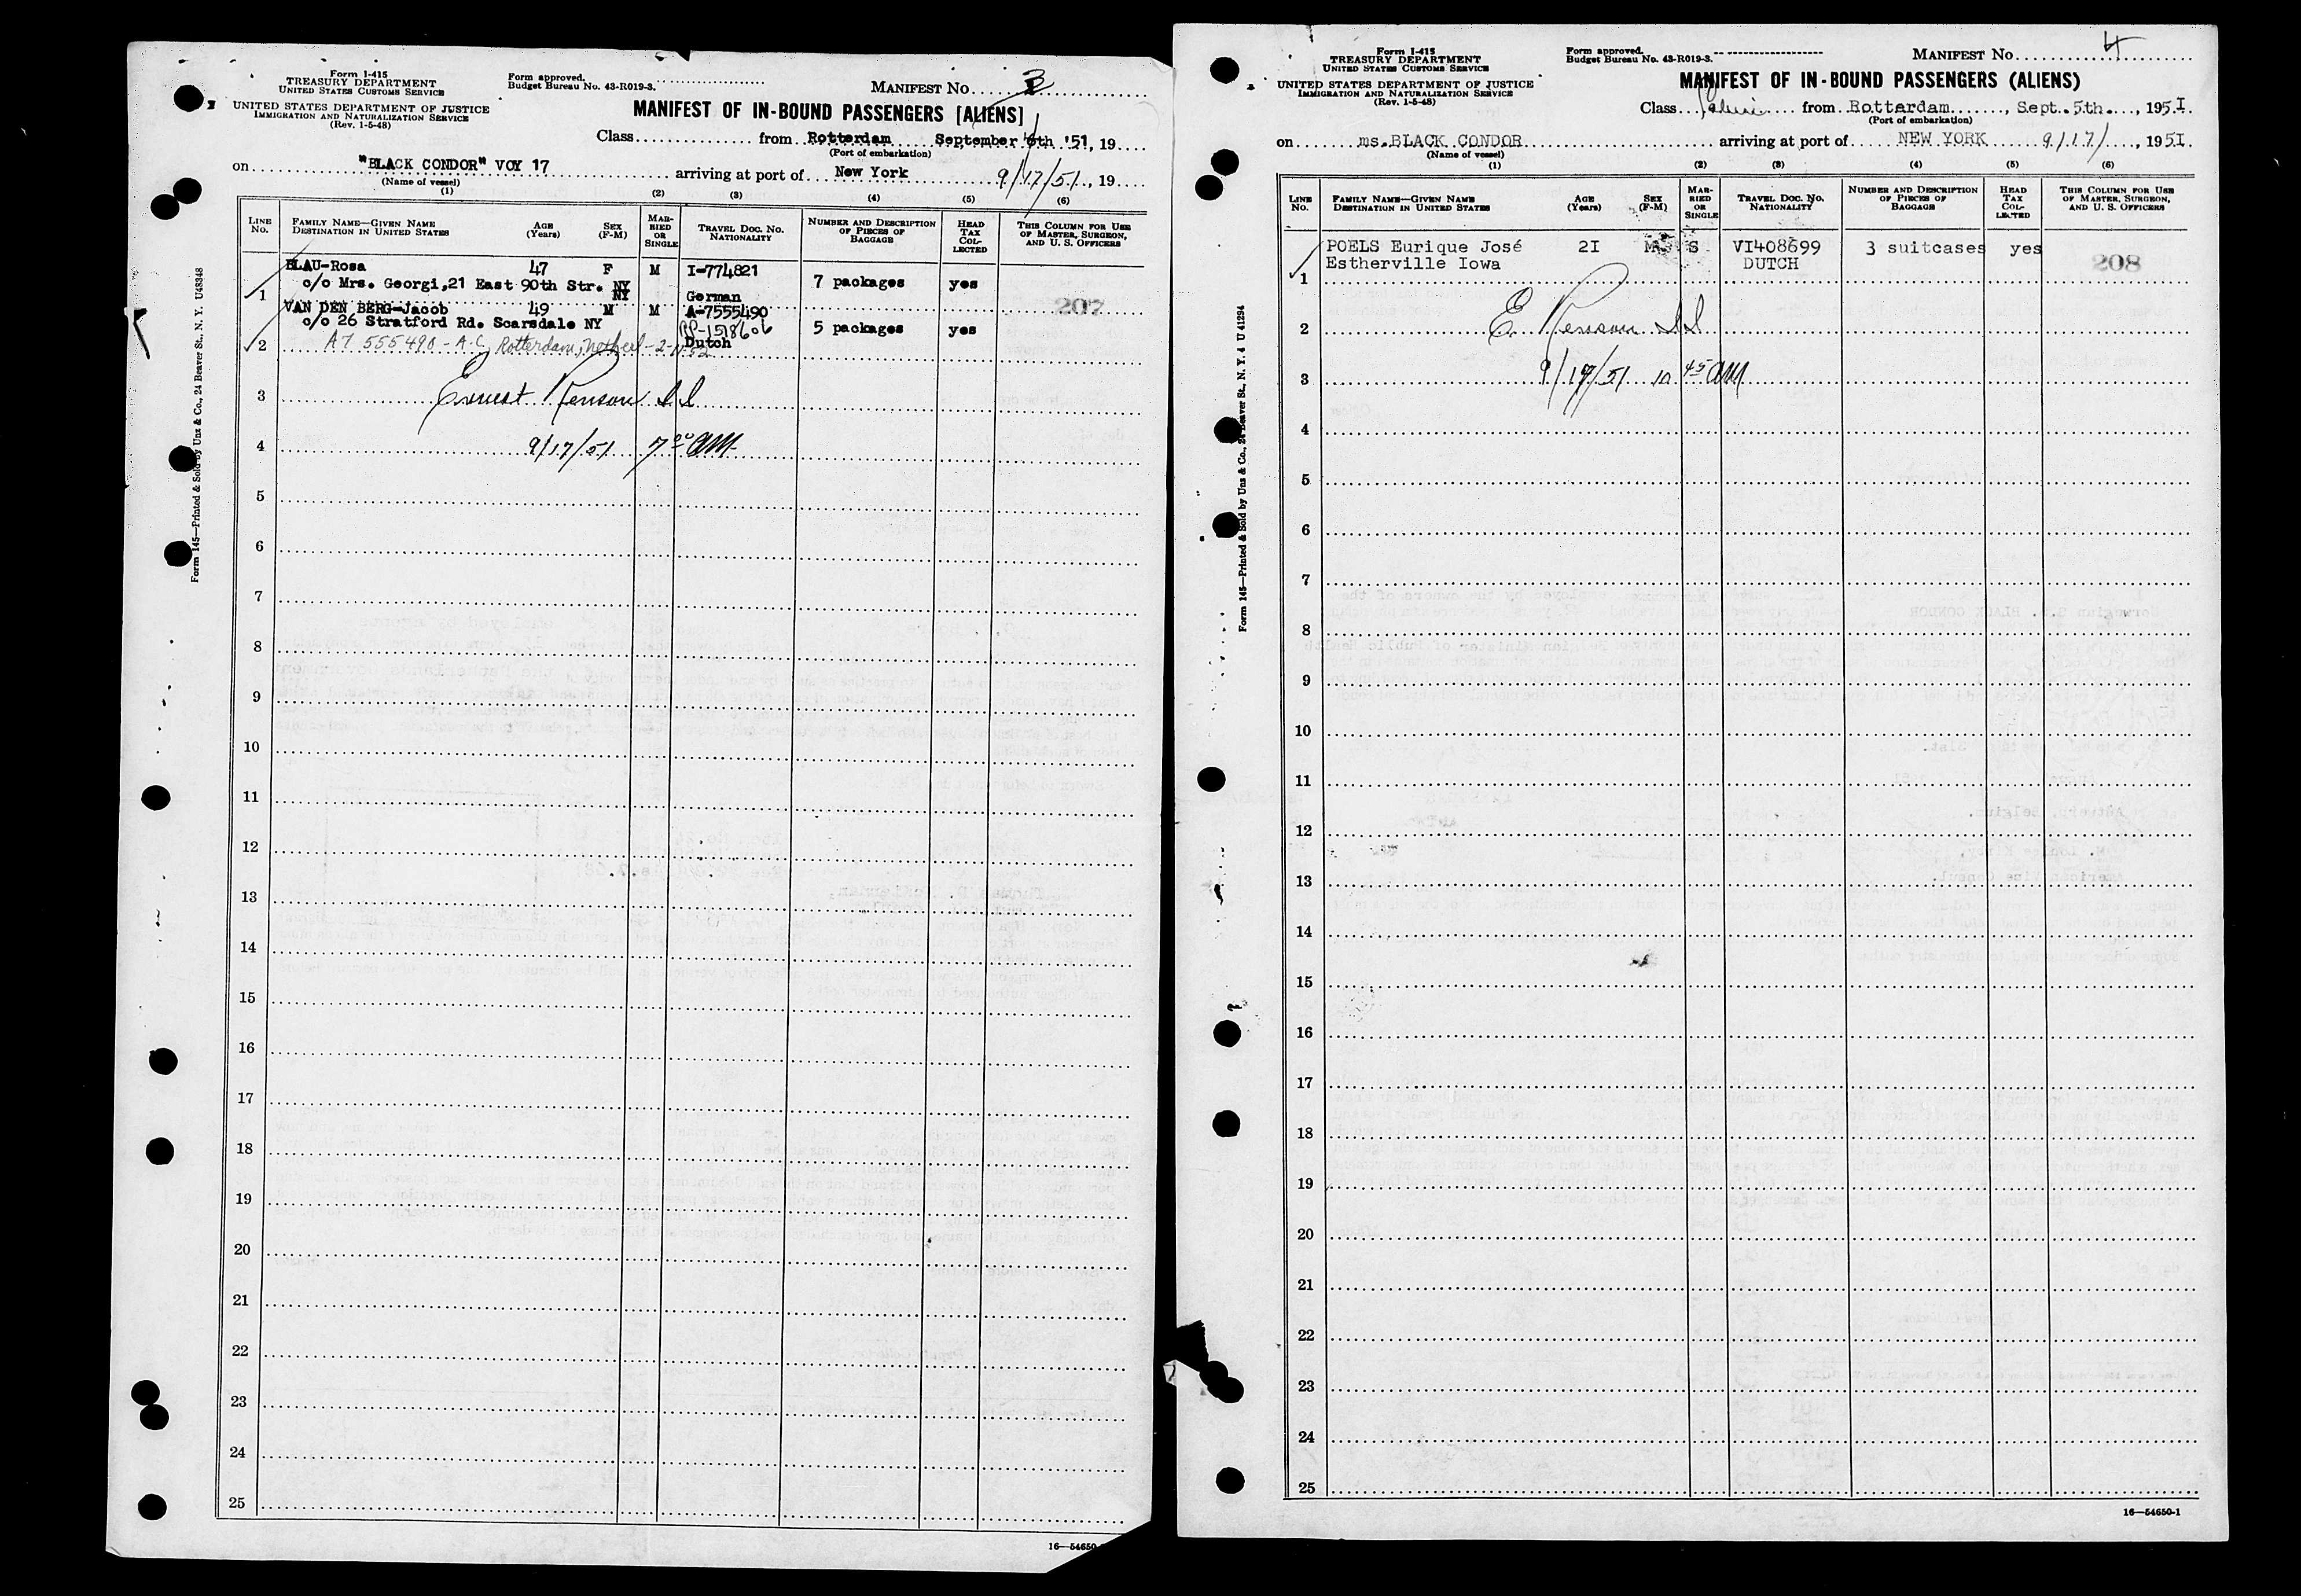 Form I-415
TREASURY DEPARTMENT
UNITED STATES CUSTOMS SERVICE
UNITED STATES DEPARTMENT OF JUSTICE
IMMIGRATION AND NATURALIZATION SERVICE
(Rev. 1-5-48)
Form approved.
Budget Bureau No. 43-R019-3.
MANIFEST No. 3
MANIFEST OF IN-BOUND PASSENGERS [ALIENS]
Class from Rotterdam September 6th '51, 19
(Port of embarkation)
on "BLACK CONDOR" VOY 17 arriving at port of New York 9/17/51, 19
(Name of vessel)
(1) (2) (3) (4) (5) (6)
LINE No.
FAMILY NAME—GIVEN NAME
DESTINATION IN UNITED STATES
AGE (Years)
SEX (F-M)
MARRIED OR SINGLE
TRAVEL DOC. No.
NATIONALITY
NUMBER AND DESCRIPTION OF PIECES OF BAGGAGE
HEAD TAX COLLECTED
THIS COLUMN FOR USE OF MASTER, SURGEON, AND U. S. OFFICERS
BLAU-Rosa 47 F M I-774821
c/o Mrs. Georgi,21 East 90th Str. NY 7 packages yes
1 NY German 207
VAN DEN BERG-Jacob 49 M M A-7555490
c/o 26 Stratford Rd. Scarsdale NY PP-1518606 5 packages yes
2 A7 555490 - A.C. Rotterdam, Netherl - 2-11-52 Dutch
3 Ernest Renson II
4 9/17/51 7 00 AM
5
6
7
8
9
10
11
12
13
14
15
16
17
18
19
20
21
22
23
24
25
16—54650-
Form 145—Printed & Sold by Unz & Co., 24 Beaver St., N. Y. U48348
Form I-415
TREASURY DEPARTMENT
UNITED STATES CUSTOMS SERVICE
UNITED STATES DEPARTMENT OF JUSTICE
IMMIGRATION AND NATURALIZATION SERVICE
(Rev. 1-5-48)
Form approved.
Budget Bureau No. 43-R019-3.
MANIFEST No. 4
MANIFEST OF IN-BOUND PASSENGERS (ALIENS)
Class from Rotterdam, Sept. 5th., 1951.
(Port of embarkation)
on ms. BLACK CONDOR arriving at port of NEW YORK 9/17/, 1951.
(Name of vessel)
(1) (2) (3) (4) (5) (6)
LINE No.
FAMILY NAME—GIVEN NAME
DESTINATION IN UNITED STATES
AGE (Years)
SEX (F-M)
MARRIED OR SINGLE
TRAVEL DOC. No.
NATIONALITY
NUMBER AND DESCRIPTION OF PIECES OF BAGGAGE
HEAD TAX COLLECTED
THIS COLUMN FOR USE OF MASTER, SURGEON, AND U. S. OFFICERS
POELS Eurique José 2I M. S VI408699 3 suitcases yes
Estherville Iowa DUTCH 208
1
2 E. Renson II
3 9/17/51 10 45 AM
4
5
6
7
8
9
10
11
12
13
14
15
16
17
18
19
20
21
22
23
24
25
16—54650-1
Form 145—Printed & Sold by Unz & Co., 24 Beaver St., N. Y. 4 U 41294